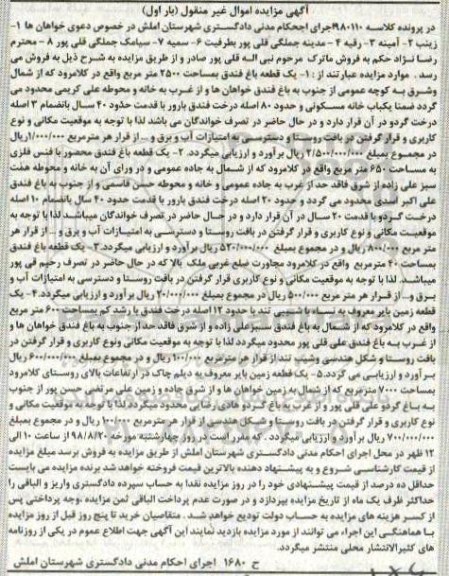 آگهی مزایده اموال غیر منقول (بار اول)
در پرونده کلاسه ۹۸۰۱۱۰ اجرای احکام مدنی دادگستری شهرستان املش در خصوص دعوی خواهان ها ۱-
زینب ۲- آمینه ۳- رقیه ۴- مدینه جملگی قلی پور بطرفیت ۶- سمیه ۷- سیامک جملگی قلی پور ۸- محترم
رضا نژاد حکم به فروش ماترک مرحوم نبی اله قلی پور صادر و از طریق مزایده به شرح ذیل به فروش می
رسد. موارد مزایده عبارتند از: ۱- یک قطعه باغ فندق بمساحت ۲۵۰۰ متر مربع واقع در کلامرود که از شمال
وشرق به کوچه عمومی از جنوب به باغ فندق خواهان ها و از غرب به خانه و محوطه علی کریمی محدود می
گردد ضمنا یکباب خانه مسکونی و حدود ۸۰ اصله درخت فندق بارور با قدمت حدود ۴۰ سال بانضمام ۳ اصله
درخت گردو در آن قرار دارد و در حال حاضر در تصرف خواندگان می باشد لذا با توجه به موقعیت مکانی و نوع
کاربری و قرار گرفتن در بافت روستا و دسترسی به امتیازات آب و برق و ... از قرار هر مترمربع ۱/۰۰۰/۰۰۰ریال
در مجموع بمبلغ ۲/۵۰۰/۰۰۰/۰۰۰ ریال برآورد و ارزیابی میگردد. ۲- یک قطعه باغ فندق محصور با فنس فلزی
به مساحت ۶۵۰ متر مربع واقع در کلامرود که از شمال به جاده عمومی و در ورای آن به خانه و محوطه هفت
سبز علی زاده از شرق فاقد حد از غرب به جاده عمومی و خانه و محوطه حسن قاسمی و از جنوب به باغ فندق
علی اکبر اسدی محدود می گردد و حدود ۲۰ اصله درخت فندق بارور با قدمت حدود ۴۰ سال بانضمام ۱۰ اصله
درخت گردو با قدمت ۲۰ سال در آن قرار دارد و در حال حاضر در تصرف خواندگان میباشد لذا با توجه به
موقعیت مکانی و نوع کاربری و قرار گرفتن در بافت روستا و دسترسی به امتیازات آب و برق و ... از قرار هر
متر مربع ۸۰۰/۰۰۰ ریال و در مجموع بمبلغ ۵۲۰/۰۰۰/۰۰۰ ریال برآورد و ارزیابی میگردد. ۳- یک قطعه باغ فندق
بمساحت ۴۰ مترمربع واقع در کلامرود مجاورت ضلع غربی ملک بالا که در حال حاضر در تصرف رحیم قی پور
میباشد. لذا با توجه به موقعیت مکانی و نوع کاربری قرار گرفتن در بافت روستا و دسترسی به امتیازات آب و
برق و... از قرار هر متر مربع ۵۰۰/۰۰۰ ریال در مجموع بمبلغ ۲۰/۰۰۰/۰۰۰ ریال برآورد و ارزیابی میگردد. ۴- یک
قطعه زمین بایر معروف به نساء با شیبی تند با حدود ۱۲ اصله درخت فندق با رشد کم بمساحت ۶۰۰ متر مربع
واقع در کلامرود که از شمال به باغ فندق سبزعلی زاده و از شرق فاقد حد از جنوب به باغ فندق خواهان ها و
از غرب به باغ فندق علی قلی پور محدود میگردد لذا با توجه به موقعیت مکانی ونوع کاربری و قرار گرفتن در
بافت روستا و شکل هندسی وشیب تند از قرار هر مترمربع ۱۰۰/۰۰۰ ریال و در مجموع بمبلغ ۶۰/۰۰۰/۰۰۰ ریال
برآورد و ارزیابی می گردد. ۵- یک قطعه زمین بایر معروف به دیلم چاک در ارتفاعات بالای روستای کلامرود
بمساحت ۷۰۰۰ مترمربع که از شمال به زمین خواهان ها و از شرق جاده و زمین علی مرتضی حسن پور از جنوب
به باغ گردو علی قلی پور و از غرب به باغ گردو هادی رضایی محدود میگردد لذا با توجه به موقعیت مکانی و
نوع کاربری و قرار گرفتن در بافت روستا و شکل هندسی از قرار هر مترمربع ۱۰۰/۰۰۰ ریال و در مجموع بمبلغ
۷۰۰/۰۰۰/۰۰۰ ریال برآورد و ارزیابی میگردد. که مقرر است در روز چهارشنبه مورخه ۹۸/۸/۲۰ از ساعت ۱۰ الی
۱۲ ظهر در محل اجرای احکام مدنی دادگستری شهرستان املش از طریق مزایده به فروش برسد مبلغ مزایده
از قیمت کارشناسی شروع و به پیشنهاد دهنده بالاترین قیمت فروخته خواهد شد برنده مزایده می بایست
حداقل ده درصد از قیمت پیشنهادی خود را در روز مزایده نقدا به حساب سپرده دادگستری واریز و الباقی را
حداکثر ظرف یک ماه از تاریخ مزایده بپردازد و در صورت عدم پرداخت الباقی ثمن مزایده ،وجه پرداختی پس
از کسر هزینه های مزایده به حساب دولت تودیع خواهد شد. متقاضیان خرید تا پنج روز قبل از روز مزایده
با هماهنگی این اجراء می توانند از مورد مزایده بازدید نمایند این آگهی جهت اطلاع عموم در یکی از روزنامه
های کثیرالانتشار محلی منتشر میگردد.
ح ۱۶۸۰ اجرای احکام مدنی دادگستری شهرستان املش